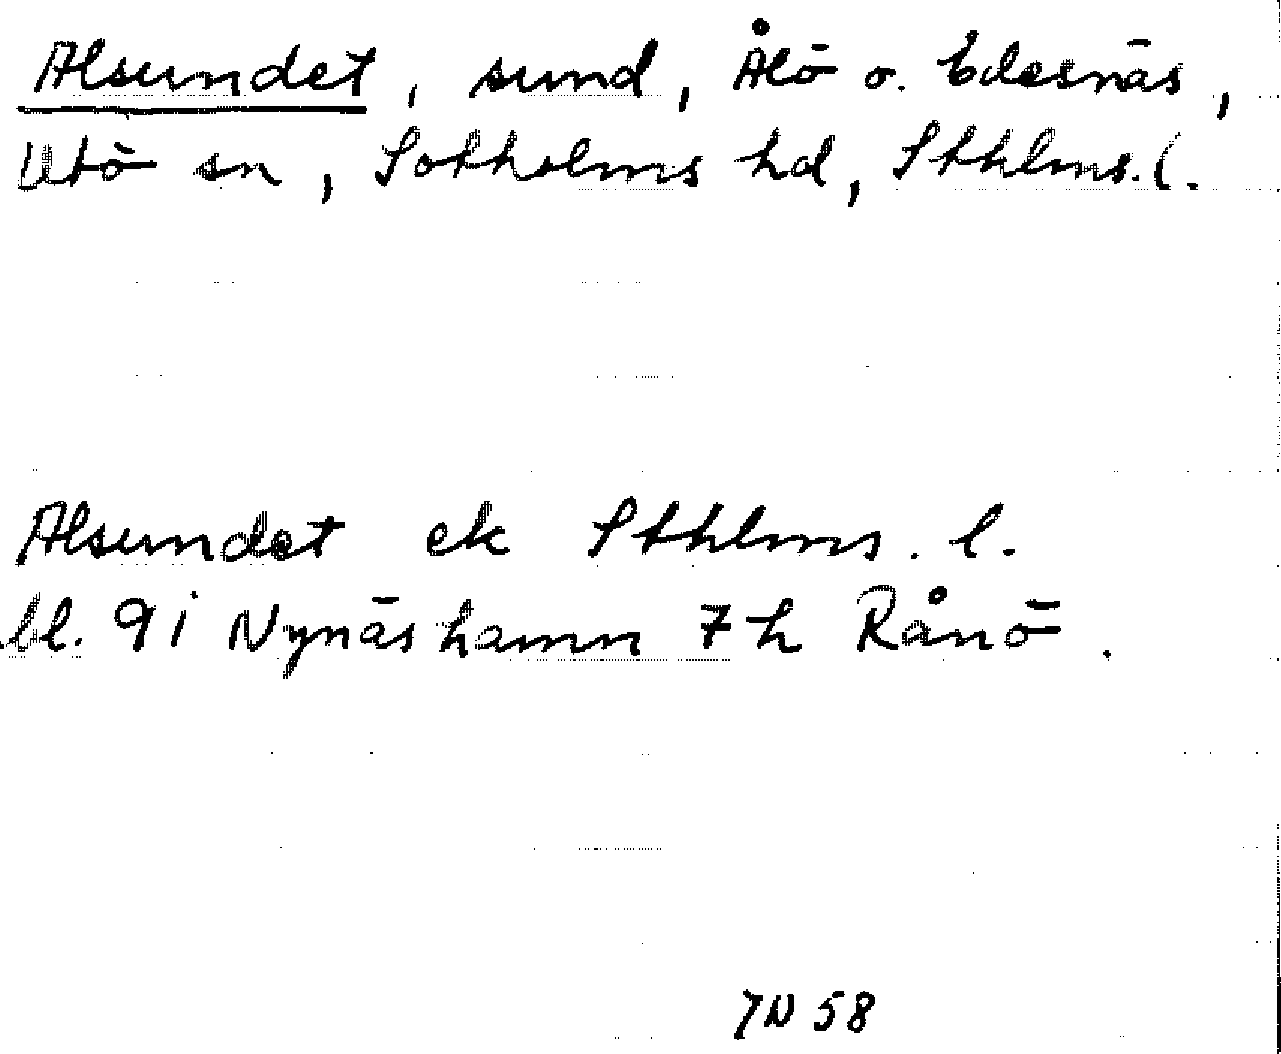 Alsundet, sund, Ålö o. Edesnäs,
Utö sn, Sotholms hd, Sthlms. l.
Alsundet ek Sthlms. l.
bl. 9i Nynäshamn 7h Rånö.
IN 58